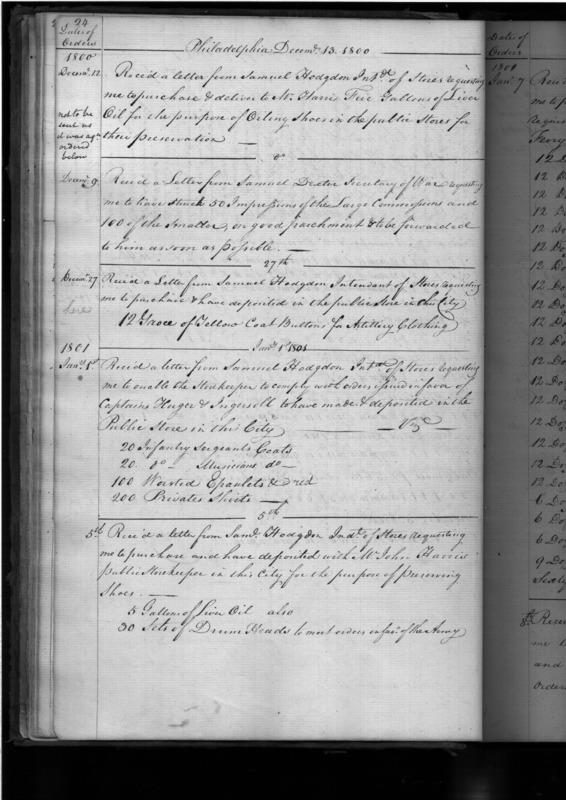 24
Date of
Orders
Philadelphia Decemr. 13. 1800
1800
Decemr. 12
Reciev'd a letter from Samuel Hodgdon Intdt. of Stores requesting
me to purchase & deliver to Mr. Harris Five Gallons of Liver
Oil for the purpose of Oiling Shoes in the public Stores for
their preservation
not to be
sent as
it was agn
ordered
below
Do
Decemr. 9
Reciev'd a Letter from Samuel Dexter Secretary of War requesting
me to have struck 50 Impressions of the large Commissions and
100 of the smaller, on good parchment & to be forwarded
to him as soon as possible.
27th
Decemr. 27
Reciev'd a Letter from Samuel Hodgdon Intendant of Stores requesting
me to purchase & have deposited in the public Store in this City
12 Groce of Yellow Coat Buttons for Artillery Clothing
1801
Jany. 1st 1801
Jany. 1st
Reciev'd a letter from Samuel Hodgdon Intdt. of Stores requesting
me to enable the Storekeeper to comply with orders issued in favor of
Captains Huger & Ingersoll to have made & deposited in the
Public Store in this City Vizt
20 Infantry Sergeants Coats
20 do Musicians do
100 Worsted Epaulets red
200 Privates Shirts
5th
5th
Reciev'd a letter from Saml. Hodgdon Indt. of Stores requesting
me to purchase and have deposited with Mr. John Harris
public Storekeeper in this City, for the purpose of preserving
Shoes.
5 Gallons of Liver Oil also
30 Sets of Drum Heads to meet orders in favr. of the Army
Date of
Orders
1801
Jany. 7
me to
12
12 D
12 D
12 D
12 Do
12 Do
12 Do
12 Do
12 Do
12 Do
12 Do
12 Do
12 Do
12 Do
12 Do
12 Do
6 Do
6 Do
6 Do
9 Do
8th
Reciev
me to
and
orders